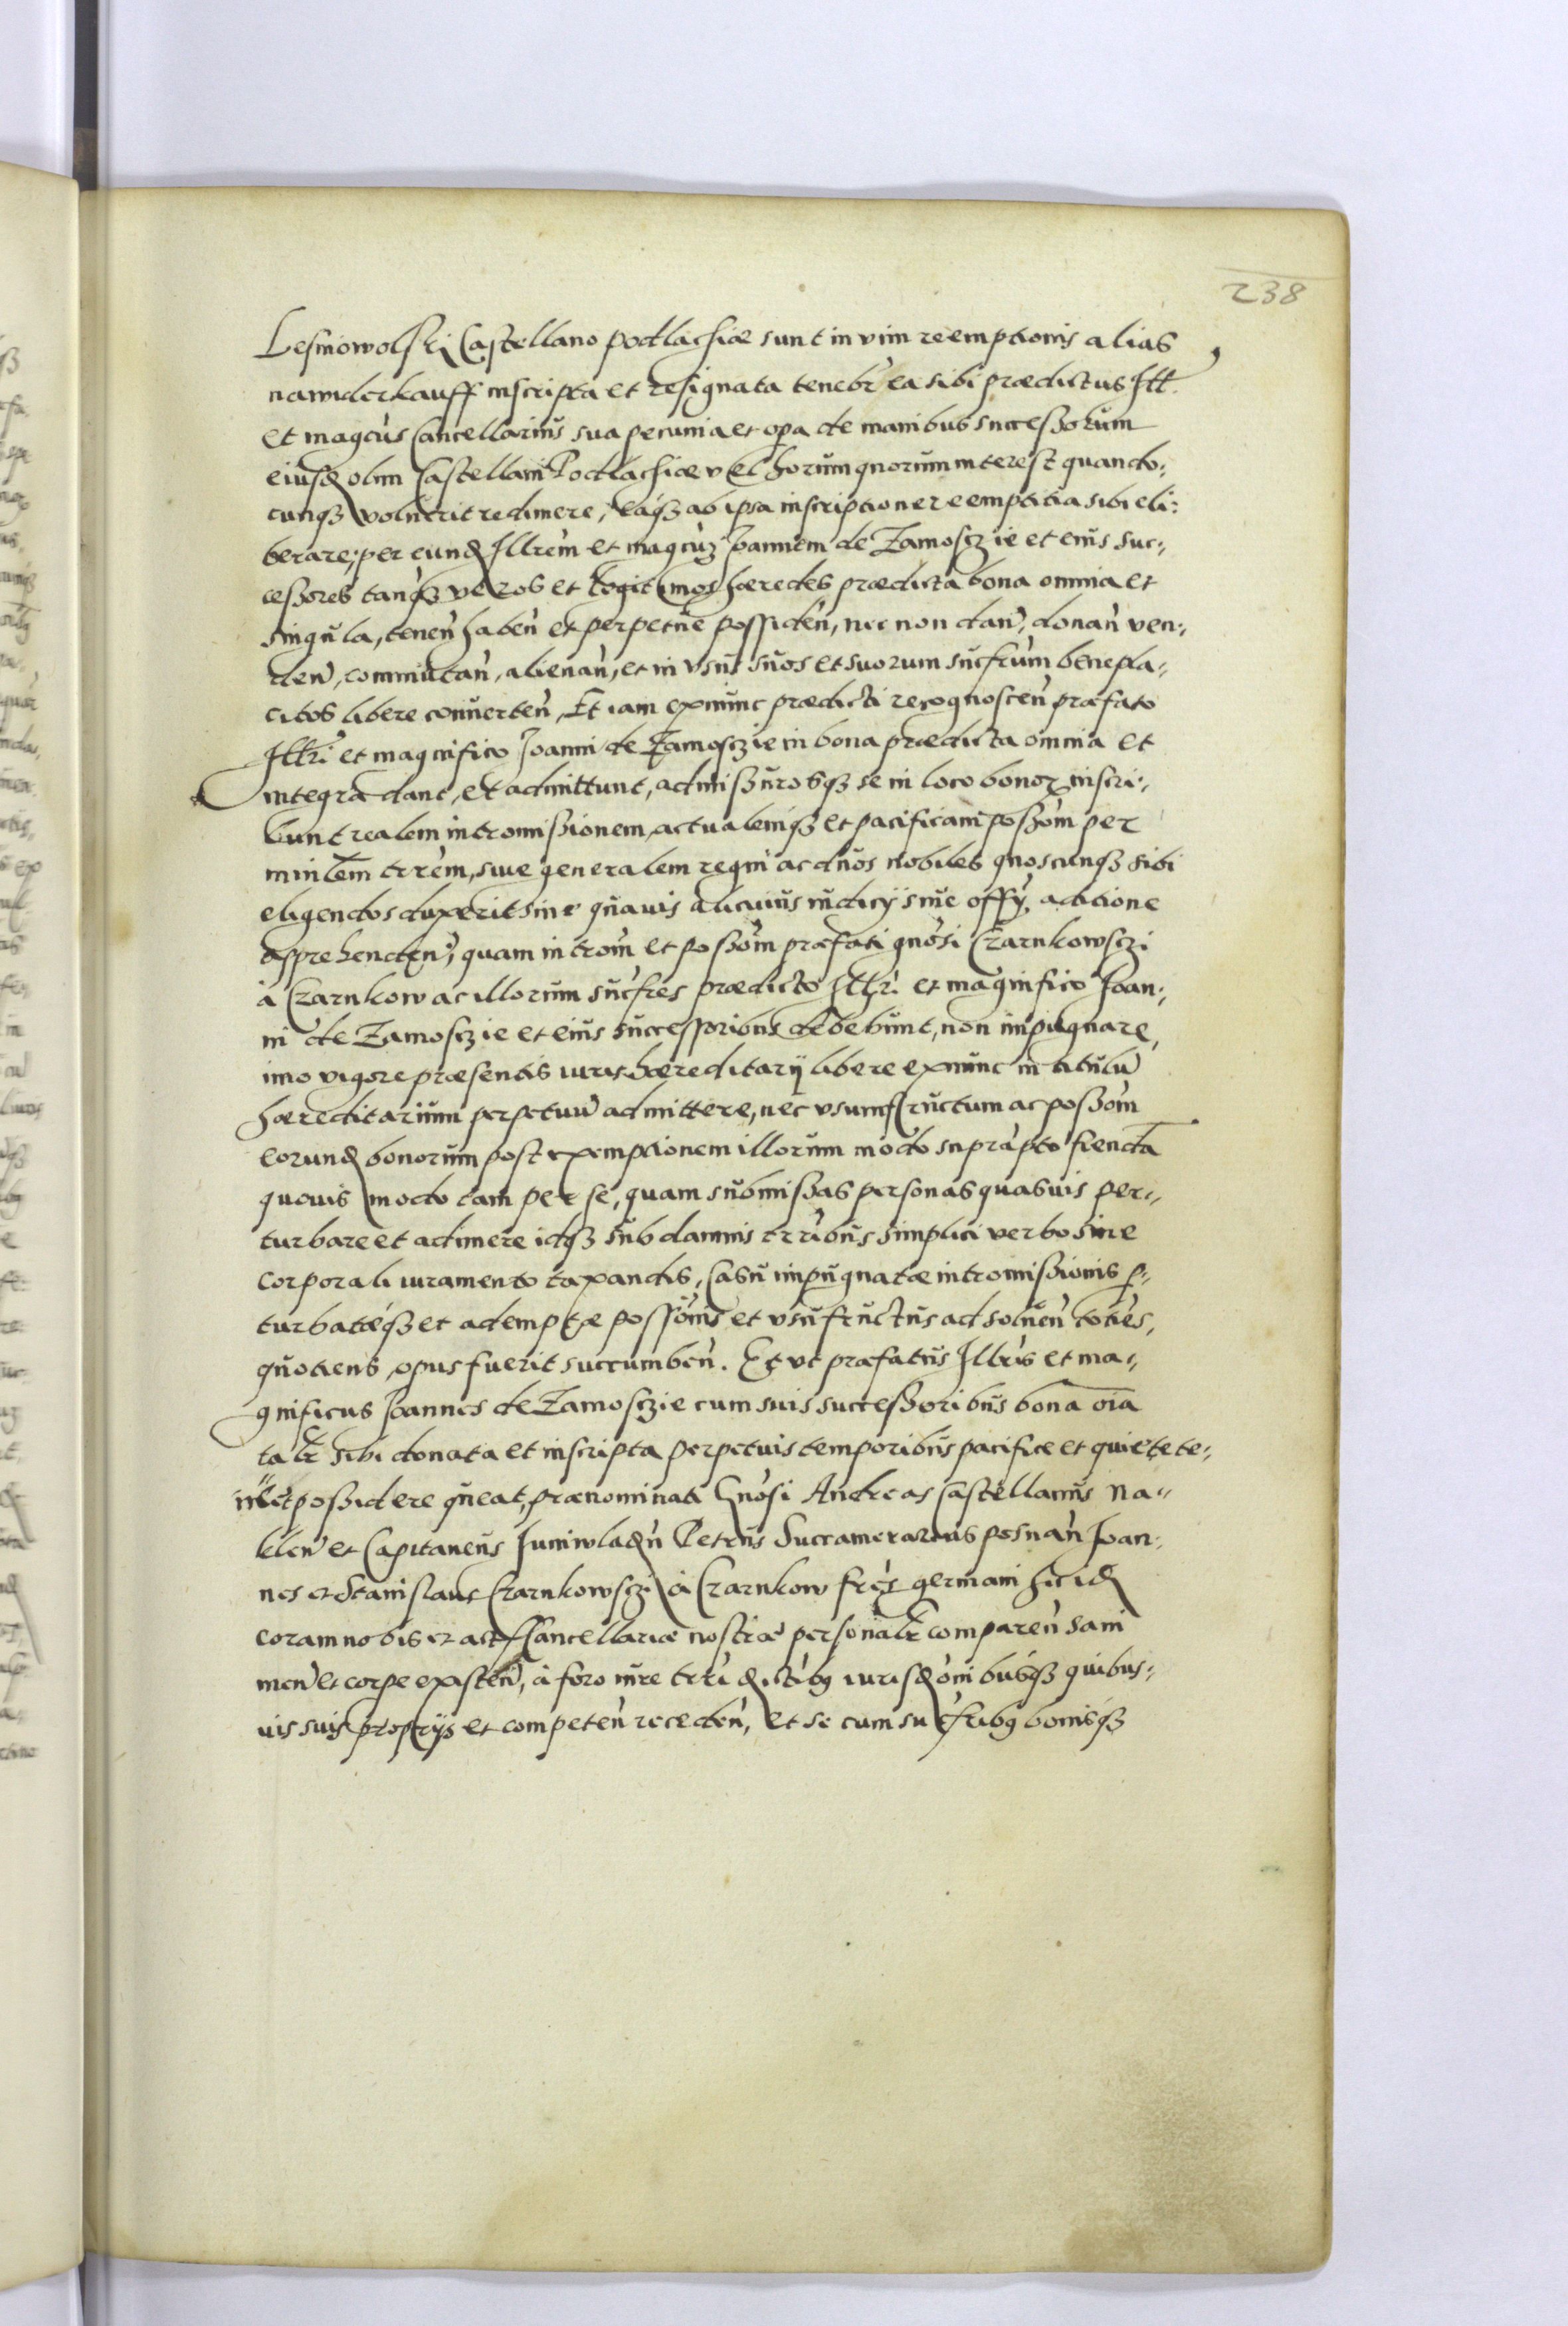 238
Lesniowolski Castellano Podlachiæ sunt in vim reemptionis alias
nawiderkauff inscripta et resignata tenebr ea sibi prædictus Ill.
et magcus Cancellarius sua pecunia et opa de manibus successorum
eiusd olim Castellani Podlachiæ vel horum quorum interest quando:
cunqz voluerit redimere, eaqz ab ipsa inscriptione reemptitia sibi eli:
berare, per eund Illrem et magcuz Joannem de Zamosczie et eius suc:
cessores tanqz veros et legitimos hæredes prædicta bona omnia et
singula, tenen haben et perpetue possiden, nec non dan, donan ven:
den, commutan, alienan, et in usus suos et suorum sucfrum benepla:
citos libere converten, Et iam exnunc prædicti recognoscen præfato
Illri et magnifico Joanni de Zamosczie in bona prædicta omnia et
integra dant, et admittunt, admissurosqz se in loco bonor inscri:
bunt realem intromissionem, actualemqz et pacificam possom per
minlem trrem, sive generalem regni ac duos nobiles quoscunqz sibi
eligendos duxerit sine quavis alicuius iudicij sive offy aditione
apprehenden, quam introm et possom præfati gnosi Czarnkowsczi
à Czarnkow ac illorum sucfres prædicto Illri et magnifico Joan:
ni de Zamosczie et eius successoribus debebunt, non impugnare,
imo vigore præsentis iuris hæreditarij libere exnunc in titulu
hæreditarium perpetuu admittere, nec usumfructum ac possom
eorund bonorum post exemptionem illorum modo suprapto fienda
quovis modo tam per se, quam submissas personas quasvis per:
turbare et adimere idqz sub damnis trribus simplici verbo sine
corporali iuramento taxandis, Casu impugnatæ intromissionis p:
turbatæqz et ademptæ possonis et usufructus ad solven toties,
quotiens opus fuerit succumben. Et ut præfatus Illris et ma:
gnificus Joannes de Zamosczie cum suis successoribus bona oia
talr sibi donata et inscripta perpetuis temporibus pacifice et quiete te:
nere et possidere queat, prænominati Gnosi Andreas Castellanus Na:
klen et Capitaneus Juniwladn Petrus Succamerarius Posnan Joan:
nes et Stanislaus Czarnkowsczi à Czarnkow fres germani hic id
coram nobis et act Cancellariæ nostræ personalr comparen sani
men et corpe existen, à foro iure trri dictibg iurisdonibusqz quibus:
vis suis proprijs et competen receden, et se cum sucfribg bonisqz